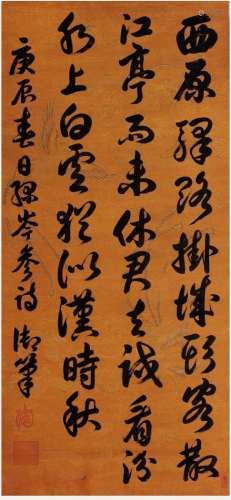 西原驛路掛城頭客散
江亭雨未休君去試看汾
水上白雲猶似漢時秋
庚辰春日錄岑參詩 御筆